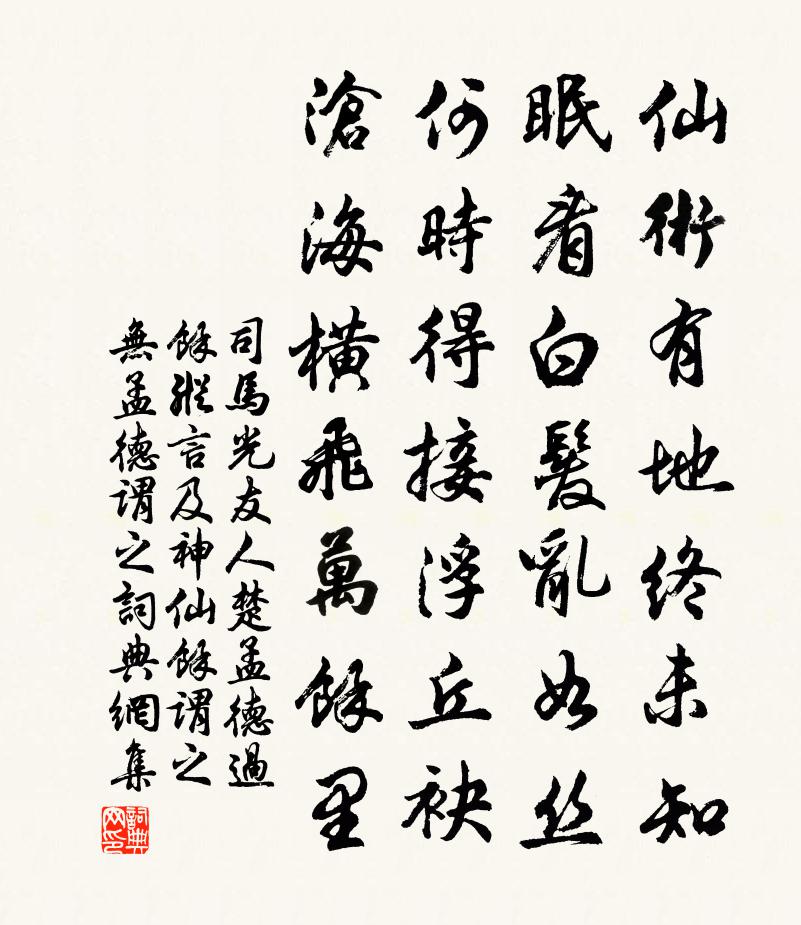 仙術有地終未知
眠看白髮亂如丝
何時得接浮丘袂
滄海橫飛萬餘里
司馬光友人楚孟德過
餘縱言及神仙餘謂之
無孟德謂之詞典網集
詞典網印